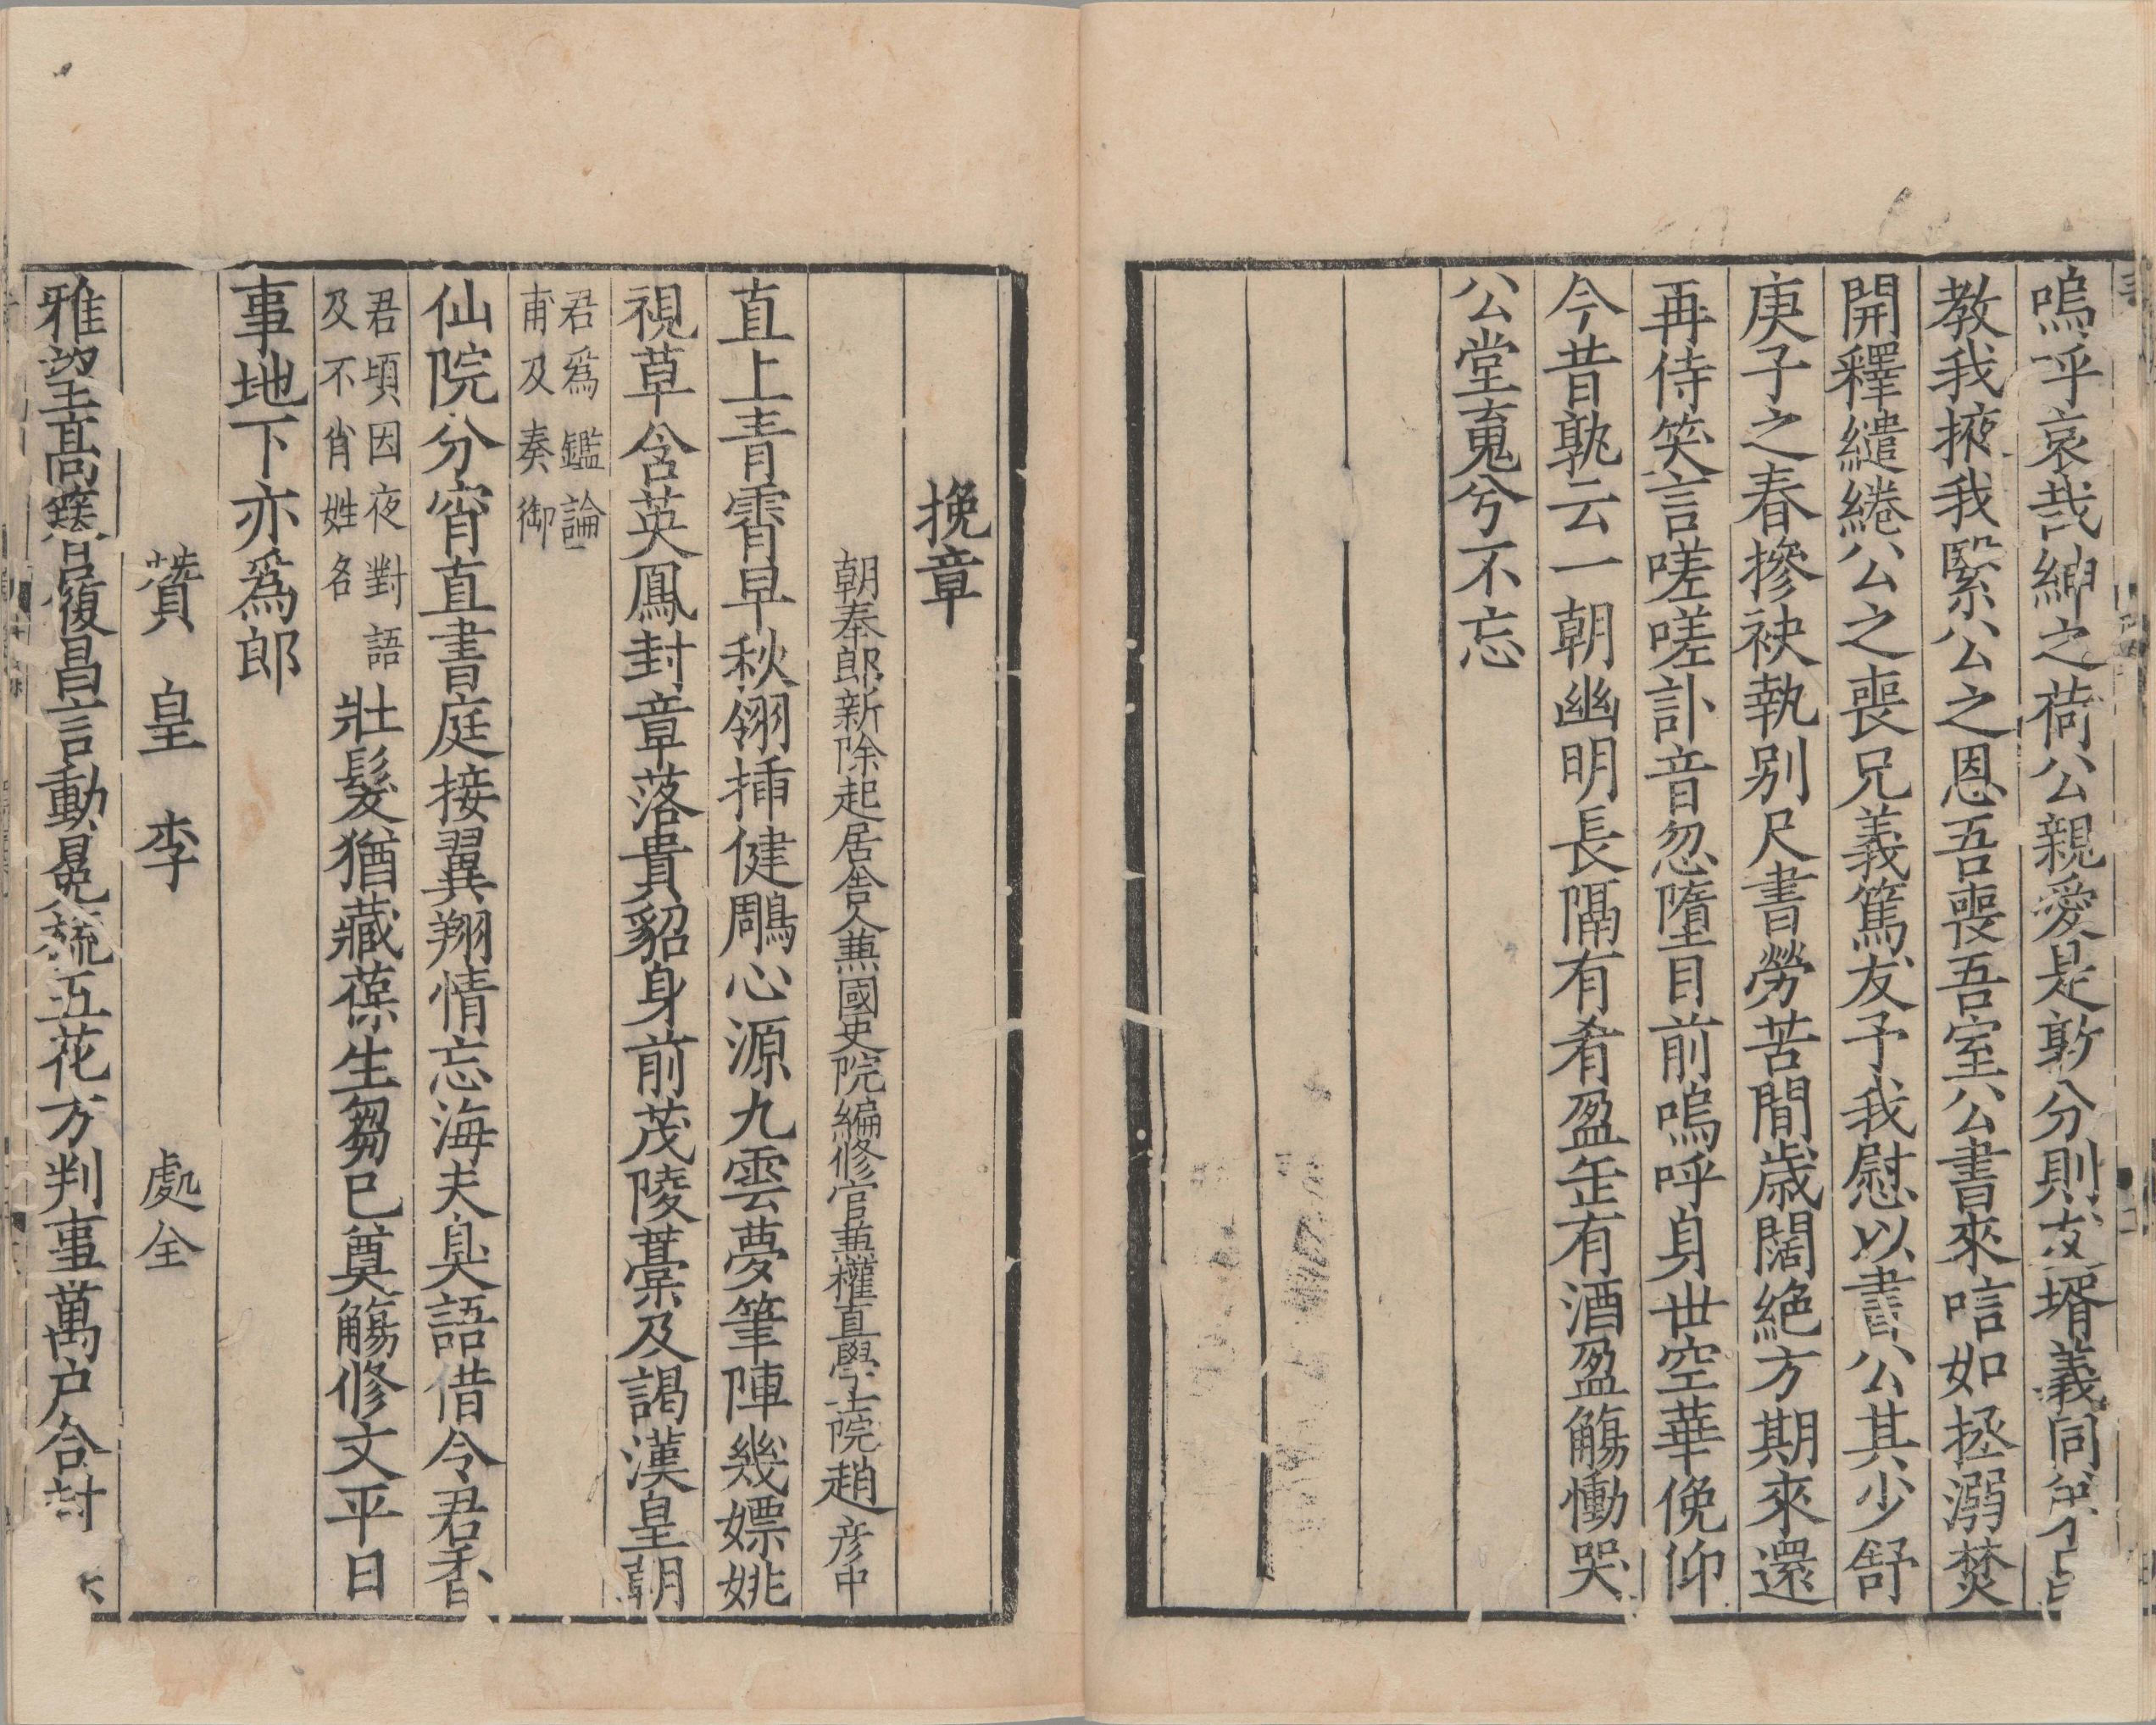 嗚呼哀哉紳之荷公親愛是敦分則友壻義同
教我掖我緊公之恩吾喪吾室公書來唁如拯溺焚
開釋繾綣公之喪兄義篤友予我慰以書公其少舒
庚子之春摻袂執别尺書勞苦間歲闊絶方期來還
再侍笑言嗟嗟訃音忽墮目前嗚呼身世空華俛仰
今昔孰云一朝幽明長隔有肴盈缶有酒盈觴慟哭
公堂䰟兮不忘
挽章
朝奉郎新除起居舍人兼國史院編修官兼權直學士院趙彦中
直上青霄早秋翎揷健鵰心源九雲夢筆陣幾嫖姚
視草含英鳳封章落貴貂身前茂陵藁及謁漢皇朝
君爲鑑論
甫及奏御
仙院分宵直書庭接翼翔情忘海夫臭語借令君香
君頃因夜對語
及不肖姓名
壯髮猶藏葆生芻已奠觴修文平日
事地下亦爲郎
贊皇李處全
雅望髙簪履昌言動冕旒五花方判事萬户合封